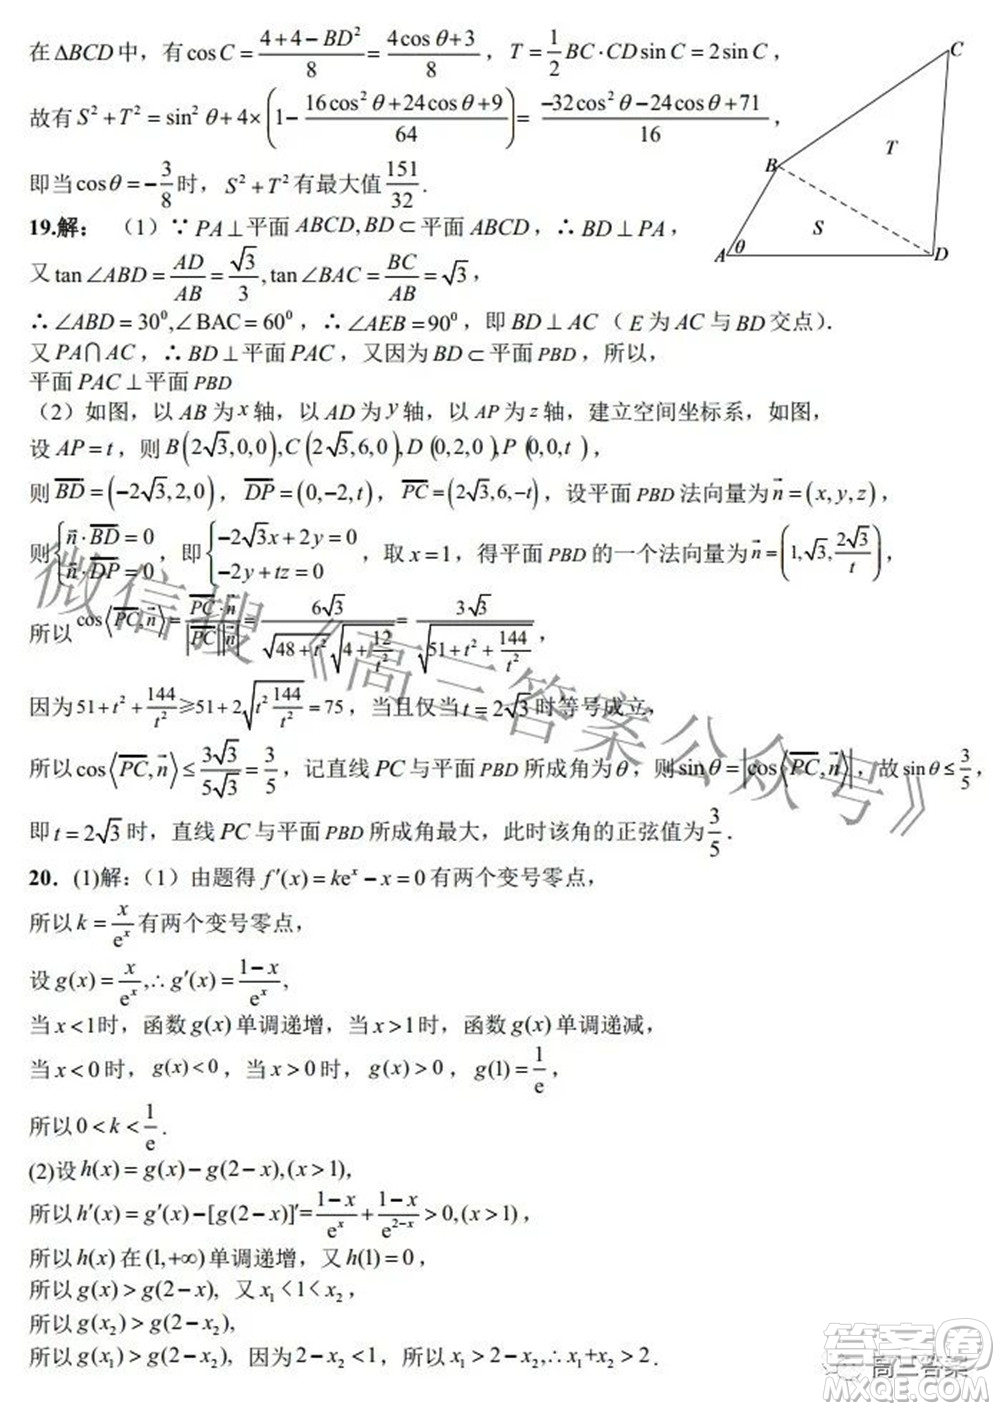 在 ΔBCD 中，有 cos C = (4+4−BD²)/8 = (4cos θ+3)/8 ，T = 1/2 BC·CD sin C = 2sin C ，
故有 S²+T² = sin²θ+4×(1−(16cos²θ+24cosθ+9)/64) = (−32cos²θ−24cosθ+71)/16 ，
即当 cosθ = −3/8 时，S²+T² 有最大值 151/32 .
C
B
T
S
A θ
D
19.解：（1）∵ PA⊥平面 ABCD, BD⊂平面 ABCD，∴ BD⊥PA，
又 tan∠ABD = AD/AB = √3/3, tan∠BAC = BC/AB = √3，
∴∠ABD = 30⁰,∠BAC = 60⁰，∴∠AEB = 90⁰，即 BD⊥AC（E为 AC 与 BD 交点）.
又 PA∩AC，∴ BD⊥平面 PAC，又因为 BD⊂平面 PBD，所以，
平面 PAC⊥平面 PBD
（2）如图，以 AB 为 x 轴，以 AD 为 y 轴，以 AP 为 z 轴，建立空间坐标系，如图，
设 AP = t，则 B(2√3,0,0),C(2√3,6,0),D(0,2,0),P(0,0,t)，
则 BD = (−2√3,2,0)，DP = (0,−2,t)，PC = (2√3,6,−t)，设平面 PBD 法向量为 n⃗ = (x,y,z)，
则 {n⃗·BD = 0, n⃗·DP = 0，即 {−2√3x+2y = 0, −2y+tz = 0，取 x = 1，得平面 PBD 的一个法向量为 n⃗ = (1,√3,2√3/t)，
所以 cos⟨PC,n⃗⟩ = PC·n⃗/|PC||n⃗| = 6√3/(√(48+t²)√(4+12/t²)) = 3√3/√(51+t²+144/t²)，
因为 51+t²+144/t² ≥ 51+2√(t²·144/t²) = 75，当且仅当 t = 2√3 时等号成立，
所以 cos⟨PC,n⃗⟩ ≤ 3√3/5√3 = 3/5，记直线 PC 与平面 PBD 所成角为 θ，则 sinθ = |cos⟨PC,n⃗⟩|，故 sinθ ≤ 3/5，
即 t = 2√3 时，直线 PC 与平面 PBD 所成角最大，此时该角的正弦值为 3/5 .
20．(1)解:（1）由题得 f′(x) = keˣ − x = 0 有两个变号零点，
所以 k = x/eˣ 有两个变号零点，
设 g(x) = x/eˣ,∴ g′(x) = (1−x)/eˣ,
当 x<1 时，函数 g(x) 单调递增，当 x>1 时，函数 g(x) 单调递减，
当 x<0 时，g(x)<0，当 x>0 时，g(x)>0，g(1) = 1/e，
所以 0<k<1/e .
(2)设 h(x) = g(x)−g(2−x),(x>1),
所以 h′(x) = g′(x)−[g(2−x)]′ = (1−x)/eˣ + (1−x)/e²⁻ˣ > 0,(x>1)，
所以 h(x) 在 (1,+∞) 单调递增，又 h(1) = 0，
所以 g(x) > g(2−x), 又 x₁<1<x₂，
所以 g(x₂) > g(2−x₂),
所以 g(x₁) > g(2−x₂), 因为 2−x₂<1，所以 x₁>2−x₂,∴ x₁+x₂>2 .
微信搜《高三答案公众号》
答案圈
高三答案
MXQE.COM